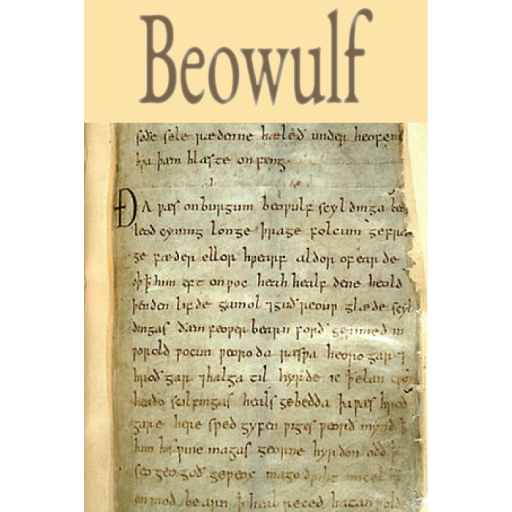 Beowulf
soðe sele rædenne hæleð under heofenū
hƿa þæm hlæste onfeng.
ÐA ƿæs on burgum beoƿulf scyldinga
leod cyning longe þrage folcum gefræ
ge fæder ellor hƿearf aldor of earde
oþ þ him eft onƿoc heah healf dene heold
þenden lifde gamol ⁊ guð reouƿ glæde scyl
dingas ðæm feoƿer bearn forð gerimed in
ƿorold ƿocun ƿeoroda ræsƿa heoro gar ⁊
hroð gar ⁊ halga til hyrde ic þ elan
heaðo scilfingas heals gebedda þa ƿæs hroð
gare here sped gyfen ƿiges ƿeorð mynd þ
him his ƿine magas georne hyrdon oðð
seo geogoð geƿeox mago driht micel
on mod bearn þ heal reced hatan ƿolde